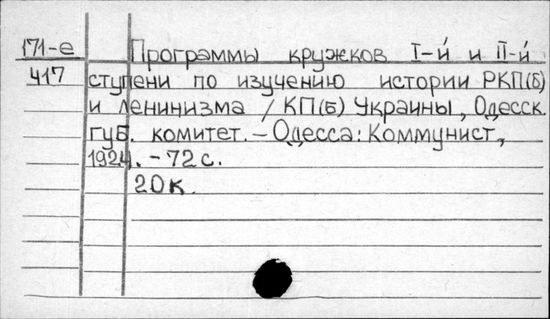 171-е Программы кружков I-й и II-й
417 ступени по изучению истории РКП(б)
и ленинизма / КП(б) Украины, Одесск.
губ. комитет. – Одесса: Коммунист,
1924. – 72 с.
20 к.